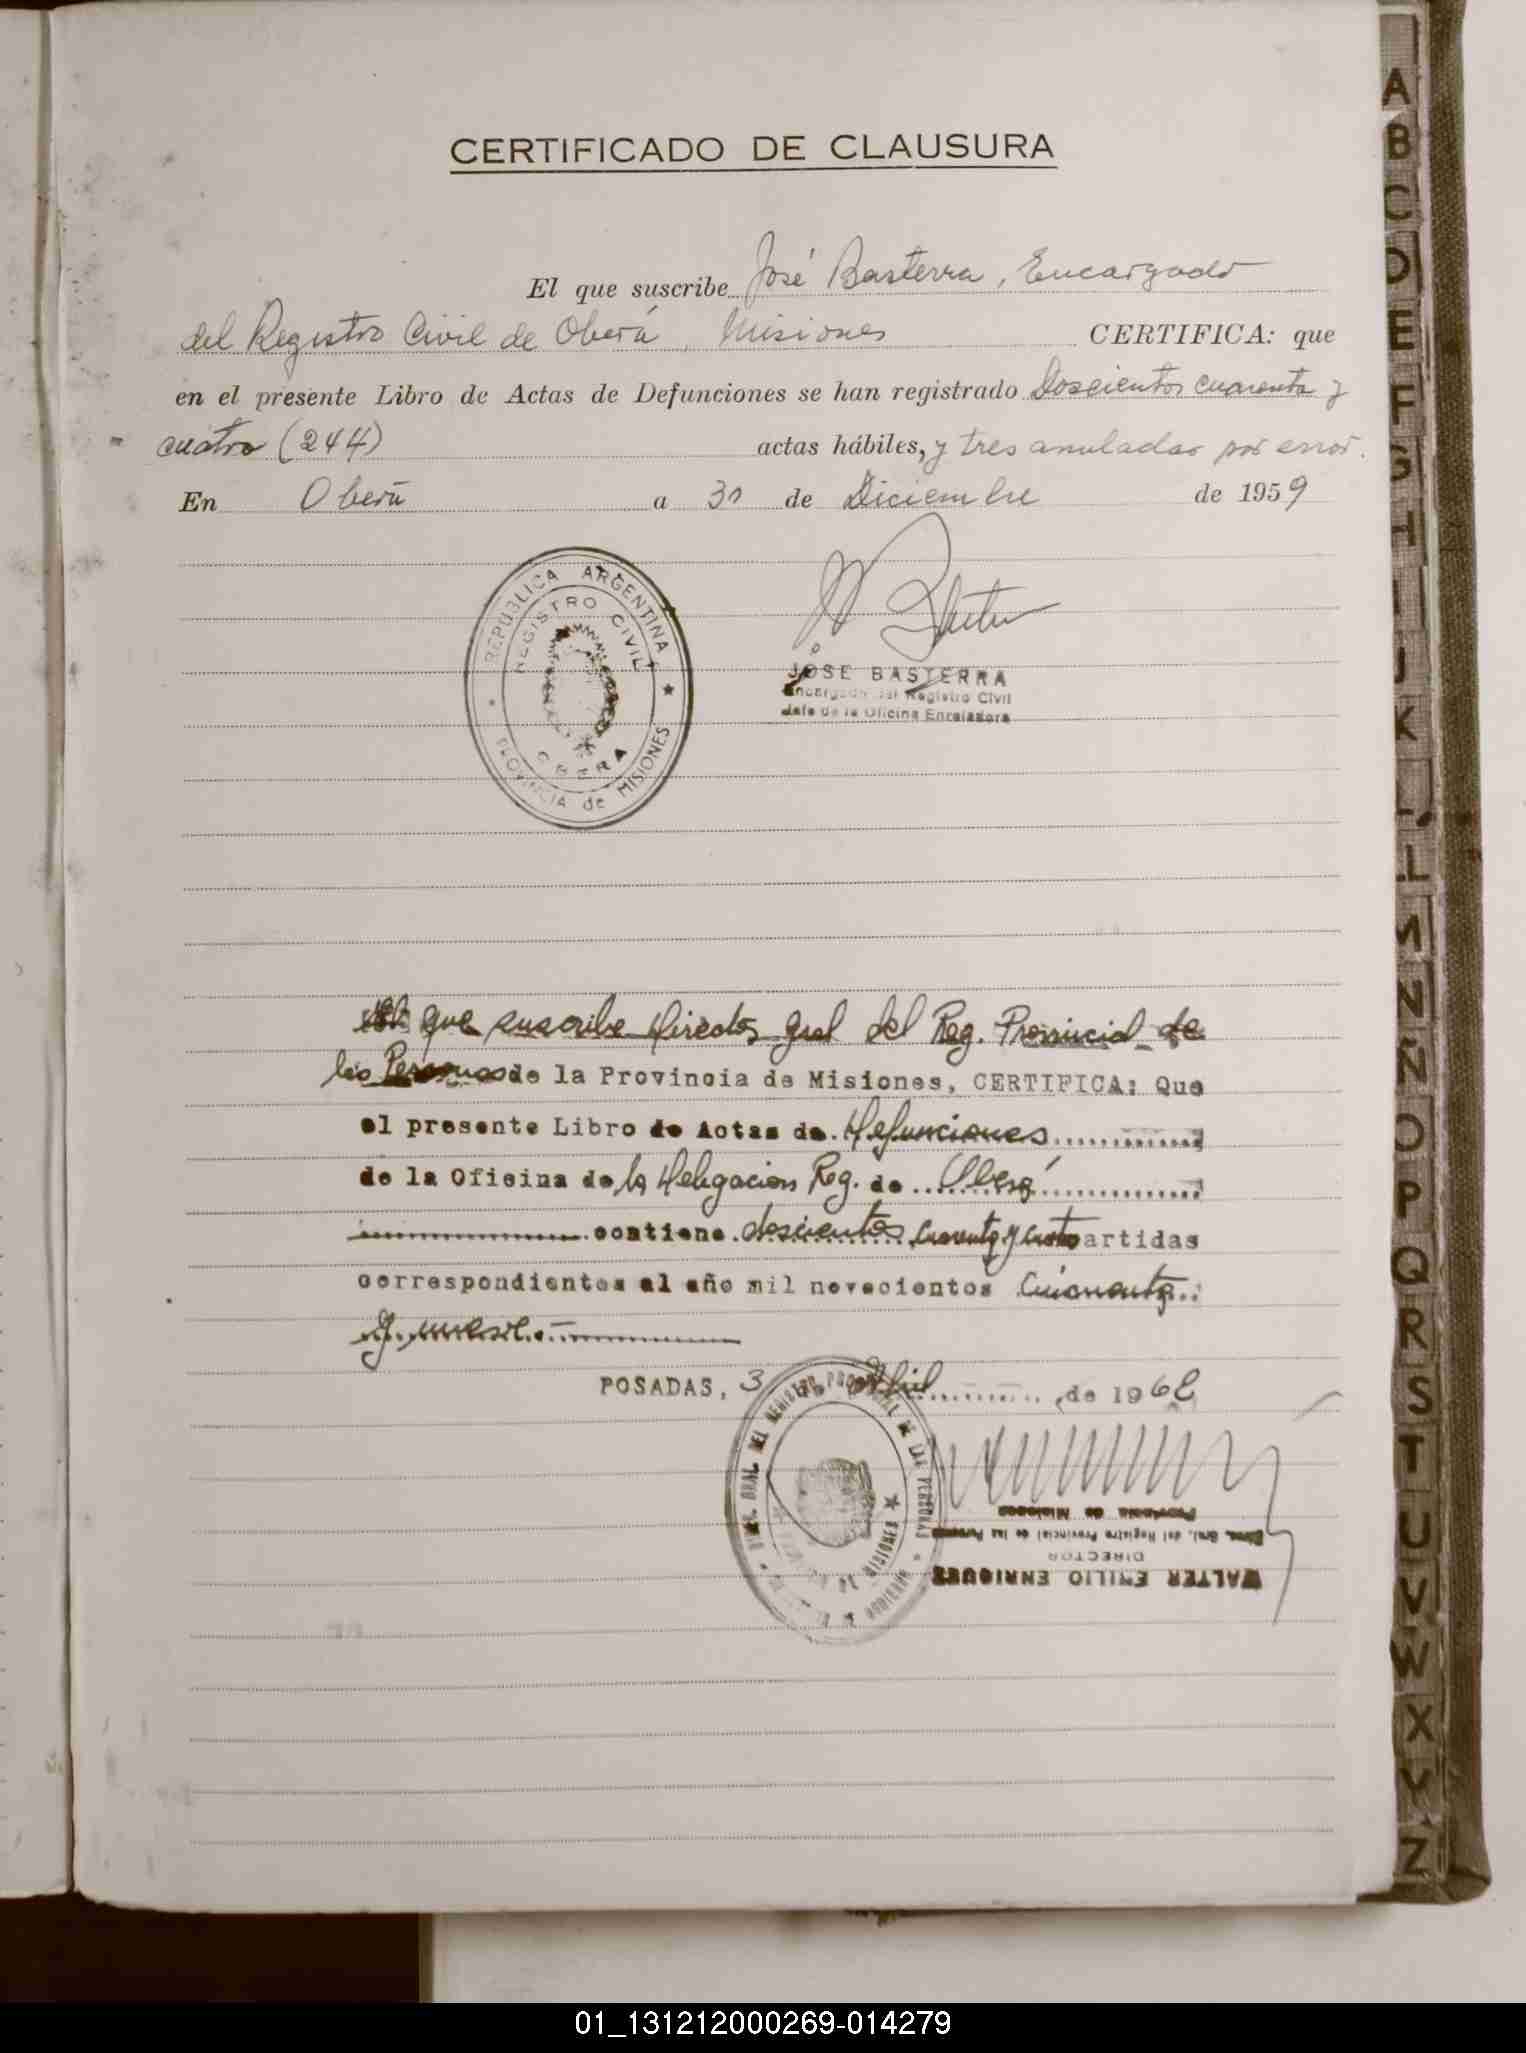 CERTIFICADO DE CLAUSURA
El que suscribe José Basterra, Encargado
del Registro Civil de Oberá, Misiones CERTIFICA: que
en el presente Libro de Actas de Defunciones se han registrado Doscientos cuarenta y
cuatro (244) actas hábiles, y tres anuladas por error.
En Oberá a 30 de Diciembre de 1959
REPUBLICA ARGENTINA
REGISTRO CIVIL
OBERA
PROVINCIA de MISIONES
JOSE BASTERRA
Encargado del Registro Civil
Jefe de la Oficina Enroladora
El que suscribe Director Gral del Reg. Provincial de
las Personas de la Provincia de Misiones, CERTIFICA: Que
el presente Libro de Actas de Defunciones
de la Oficina de la Delegación Reg. de Oberá
contiene doscientos cuarenta y cuatro partidas
correspondientes al año mil novecientos Cincuenta
y nueve
POSADAS, 3 Abril de 1962
DIREC. GRAL. DEL REGISTRO PROVINCIAL DE LAS PERSONAS
MISIONES
Provincia de Misiones
Direc. Gral. del Registro Provincial de las Personas
DIRECTOR
WALTER EMILIO ENRIQUEZ
A
B
C
D
E
F
G
H
I
J
K
L
LL
M
N
Ñ
O
P
Q
R
S
T
U
V
W
X
Y
Z
01_131212000269-014279